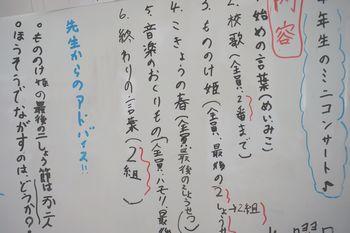 年生のミニコンサート♪
内容
1. 始めの言葉(めいみこ)
2. 校歌(全員、2番まで)
3. もののけ姫(全員、最後の2しょう
→2組
4. こきょうの春(全員、最後のしょうせつ)
5. 音楽のおくりもの(全員、ハモリ、最後
6. 終わりの言葉(2組)
先生からのアドバイス!!
○もののけ姫の最後の2しょう節は
○ほうそうでながすのはどうか?